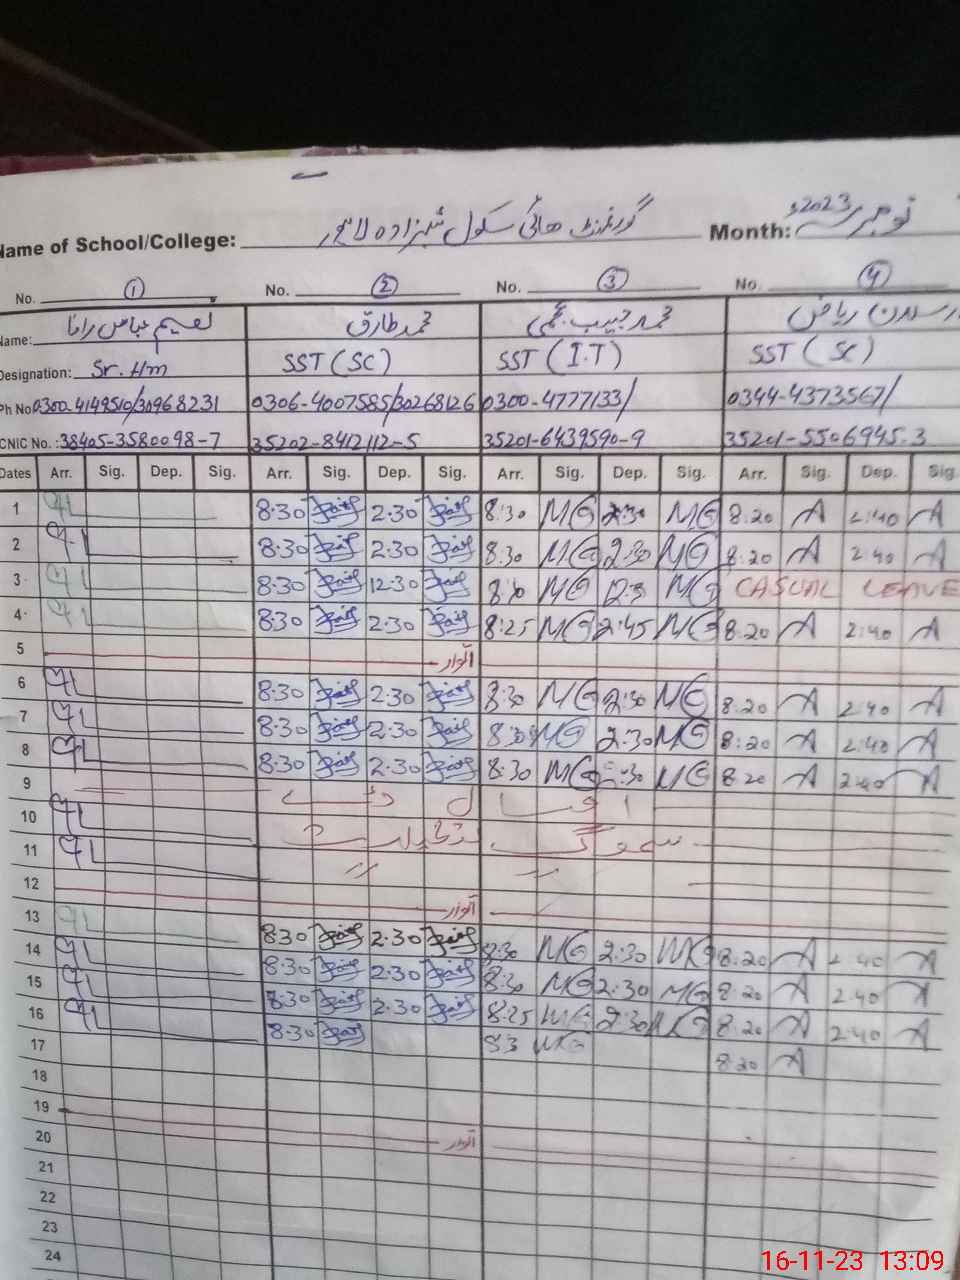 Name of School/College: گورنمنٹ ھائی سکول شہزادہ لاہور Month: نومبر 2023ء
No. ① No. ② No. ③ No. ④
Name: نعیم عباس رانا محمد طارق محمد حبیب ریاض
Designation: Sr. Hm SST (SC) SST (I.T) SST (SC)
Ph No 0300-4149510/30968231 0306-4007585/30268126 0300-4777133/ 0344-4373567/
CNIC No. : 38405-3580098-7 35202-8412112-5 35201-6439590-9 35201-5506945-3
Dates Arr. Sig. Dep. Sig. Arr. Sig. Dep. Sig. Arr. Sig. Dep. Sig. Arr. Sig. Dep. Sig.
1 8.30 2.30 8:30 MG 2:30 MG 8.20 A 2:40 A
2 8.30 2.30 8:30 MG 2:30 MG 8.20 A 2:40 A
3 8.30 12.30 8:30 MG MG CASUAL LEAVE
4 8.30 2.30 8:25 MG 2:45 MG 8.20 A 2:40 A
5 اتوار
6 8.30 2.30 8:30 MG 2:30 MG 8.20 A 2:40 A
7 8.30 2.30 8:30 MG 2:30 MG 8:20 A 2:40 A
8 8.30 2.30 8:30 MG 2:30 MG 8.20 A 2:40 A
9 اقبال ڈے
10 سموگ تعطیلات
11 〃 〃
12 اتوار
13 8.30 2.30 8:30 MG 2:30 MG 8.20 A 2:40 A
14 8.30 2.30 8:30 MG 2:30 MG 8.20 A 2:40 A
15 8.30 2.30 8:25 MG 2:30 MG 8.20 A 2:40 A
16 8.30 83 MG 8.20 A
17
18
19 اتوار
20
21
22
23
24
16-11-23 13:09